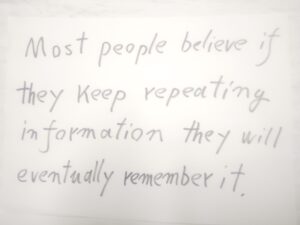 Most people believe if
they keep repeating
information they will
eventually remember it.